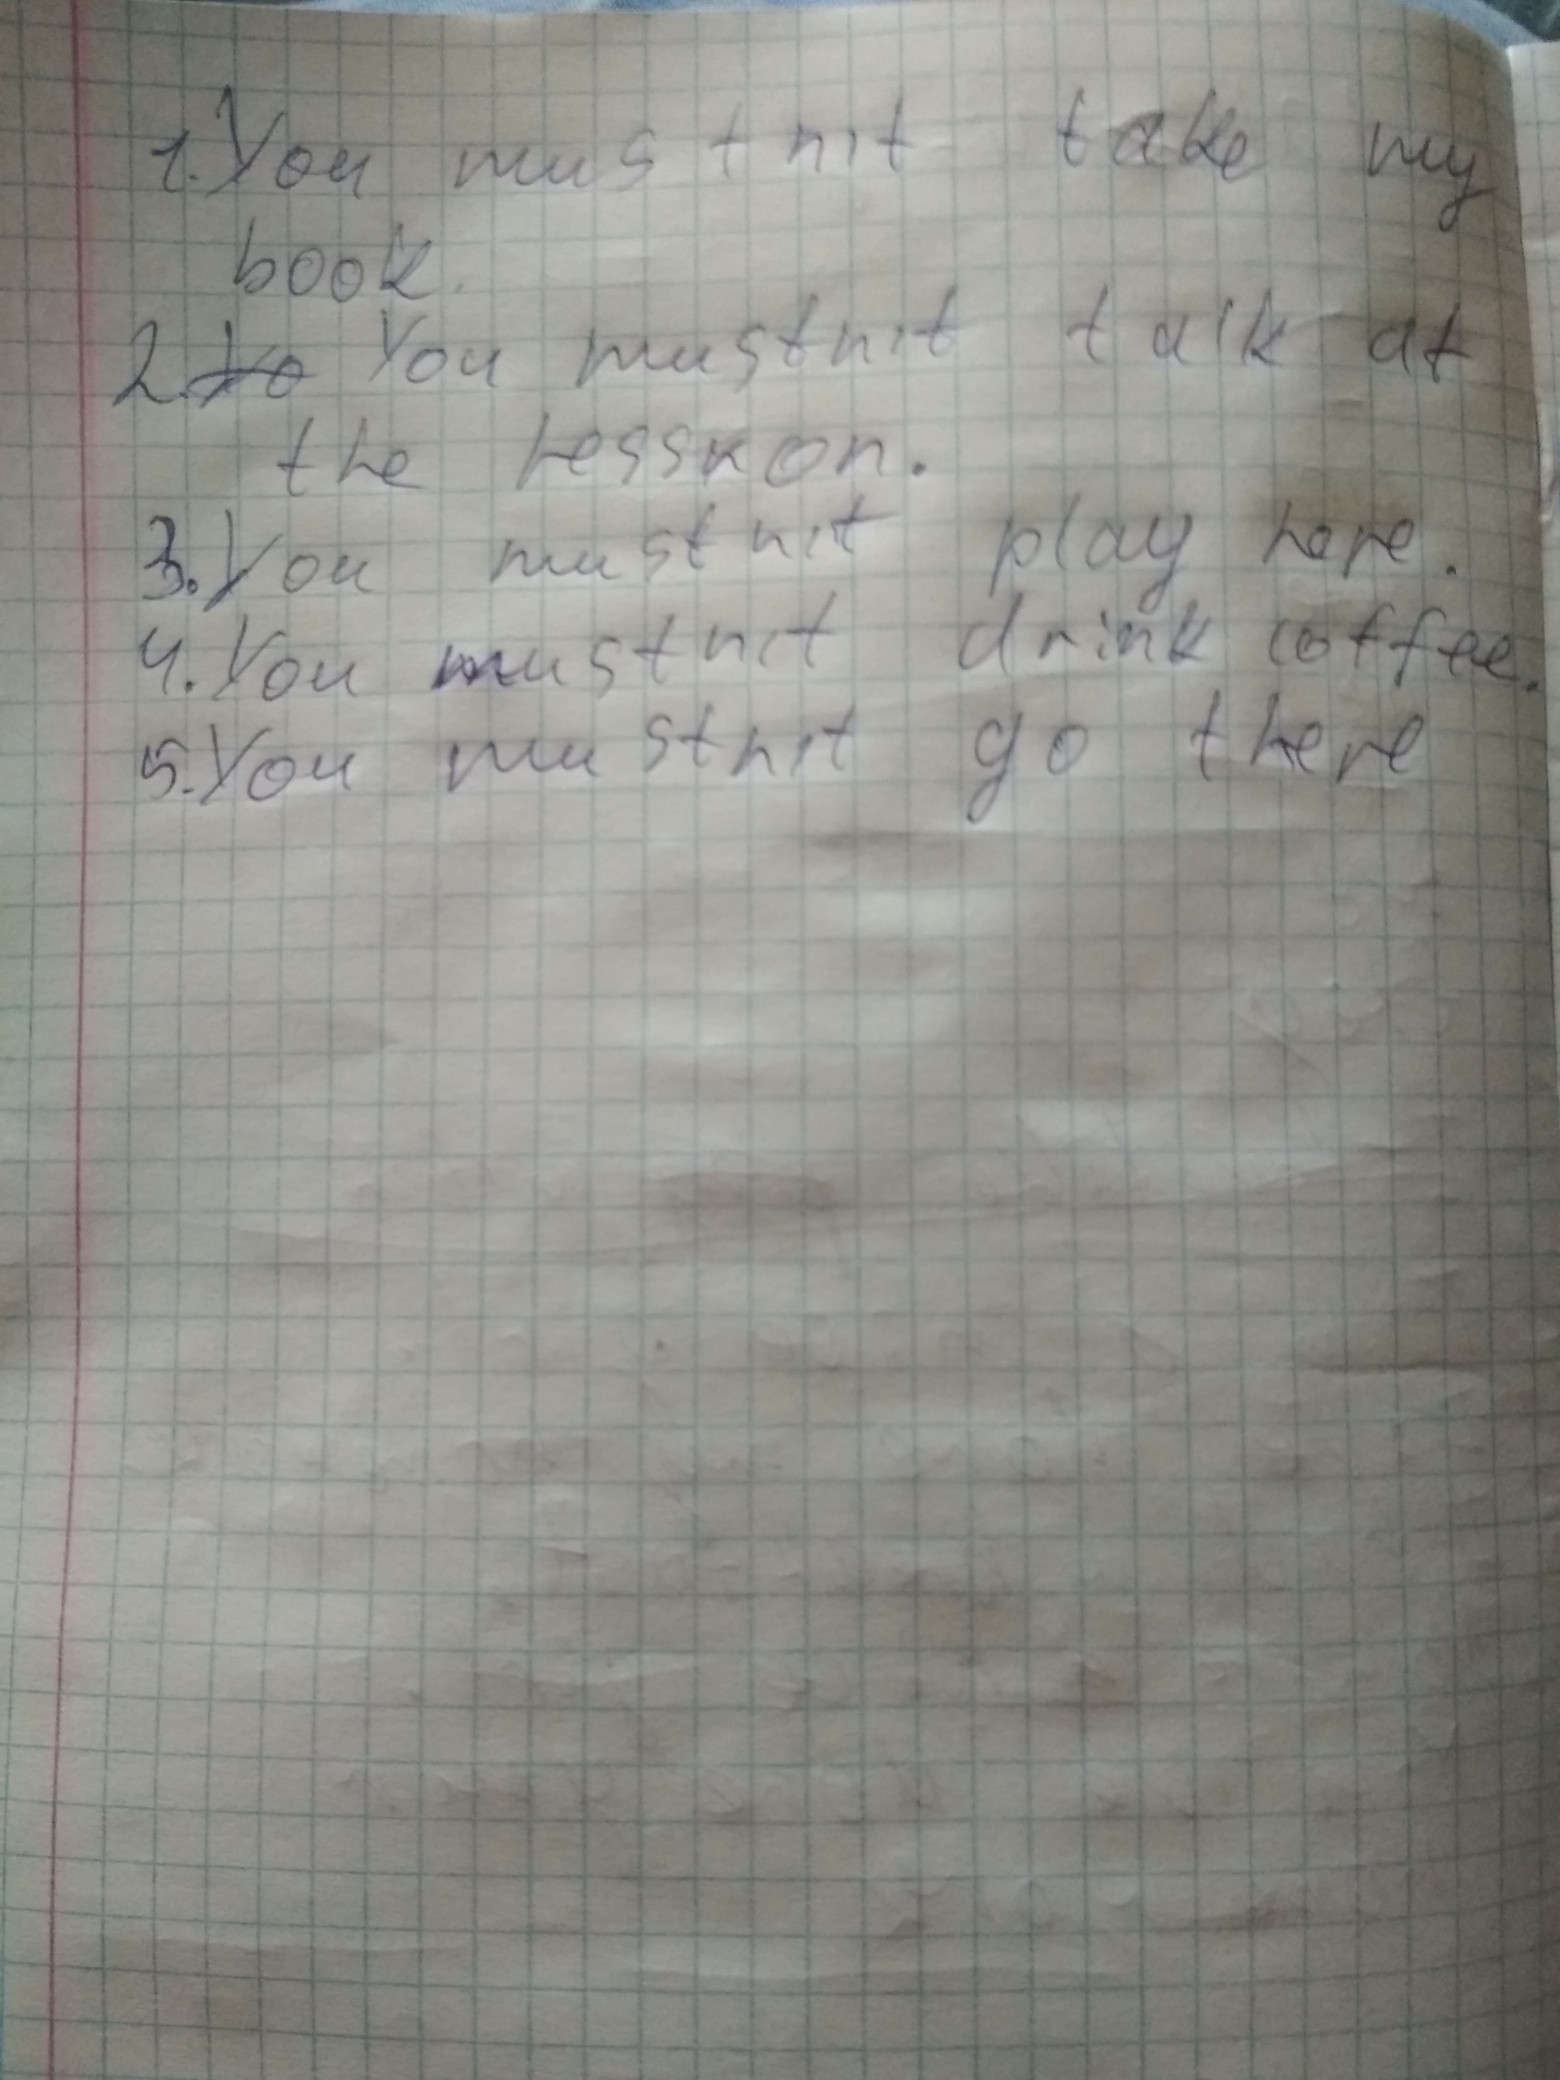 1. You mustnit take my
book.
2. Yo You mustnit talk at
the lesskon.
3. You mustnit play here.
4. You mustnit drink coffee.
5. You mustnit go there